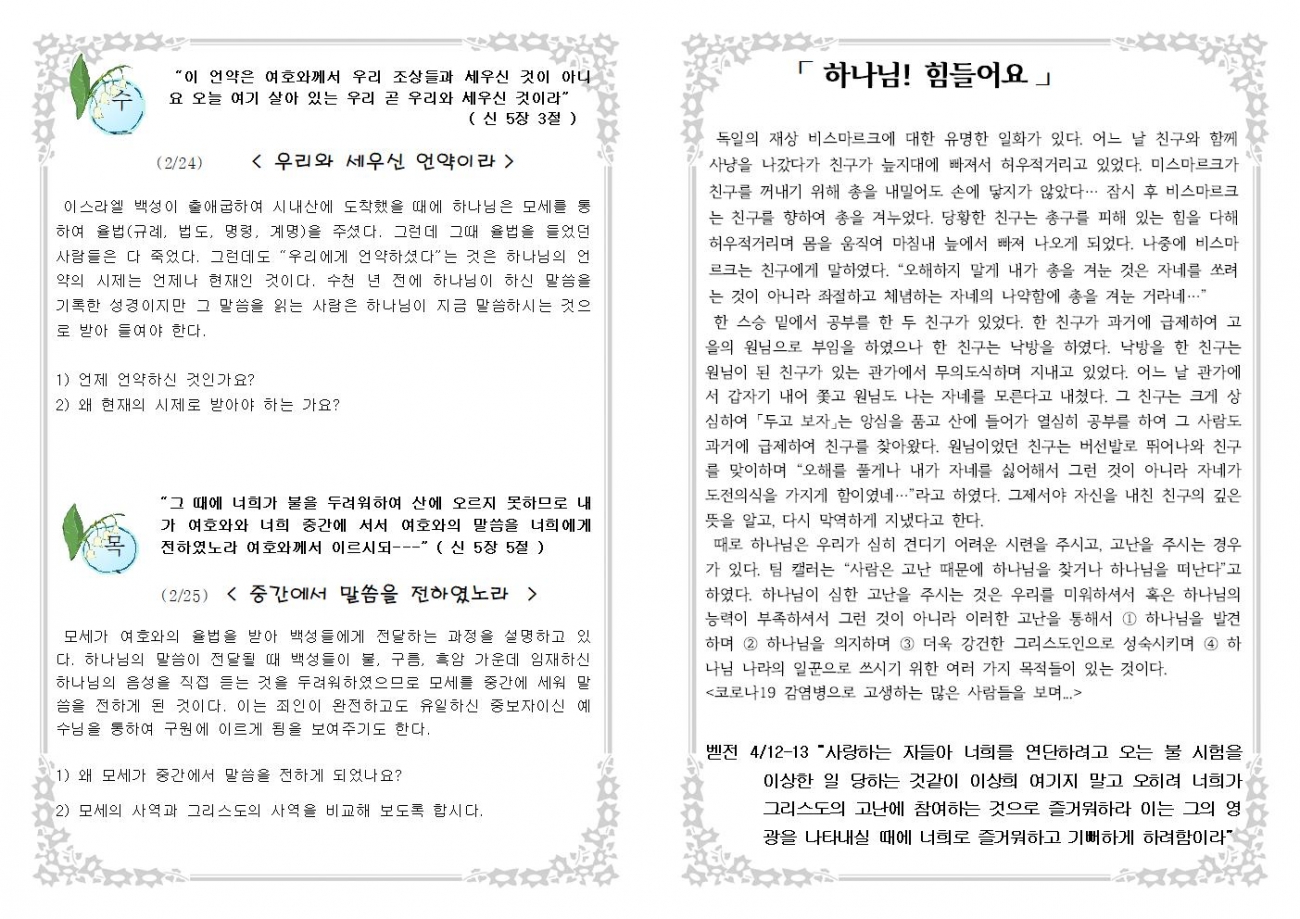 수
“이 언약은 여호와께서 우리 조상들과 세우신 것이 아니
요 오늘 여기 살아 있는 우리 곧 우리와 세우신 것이라”
( 신 5장 3절 )
(2/24) < 우리와 세우신 언약이라 >
이스라엘 백성이 출애굽하여 시내산에 도착했을 때에 하나님은 모세를 통
하여 율법(규례, 법도, 명령, 계명)을 주셨다. 그런데 그때 율법을 들었던
사람들은 다 죽었다. 그런데도 “우리에게 언약하셨다”는 것은 하나님의 언
약의 시제는 언제나 현재인 것이다. 수천 년 전에 하나님이 하신 말씀을
기록한 성경이지만 그 말씀을 읽는 사람은 하나님이 지금 말씀하시는 것으
로 받아 들여야 한다.
1) 언제 언약하신 것인가요?
2) 왜 현재의 시제로 받아야 하는 가요?
목
“그 때에 너희가 불을 두려워하여 산에 오르지 못하므로 내
가 여호와와 너희 중간에 서서 여호와의 말씀을 너희에게
전하였노라 여호와께서 이르시되---” ( 신 5장 5절 )
(2/25) < 중간에서 말씀을 전하였노라 >
모세가 여호와의 율법을 받아 백성들에게 전달하는 과정을 설명하고 있
다. 하나님의 말씀이 전달될 때 백성들이 불, 구름, 흑암 가운데 임재하신
하나님의 음성을 직접 듣는 것을 두려워하였으므로 모세를 중간에 세워 말
씀을 전하게 된 것이다. 이는 죄인이 완전하고도 유일하신 중보자이신 예
수님을 통하여 구원에 이르게 됨을 보여주기도 한다.
1) 왜 모세가 중간에서 말씀을 전하게 되었나요?
2) 모세의 사역과 그리스도의 사역을 비교해 보도록 합시다.
「 하나님! 힘들어요 」
독일의 재상 비스마르크에 대한 유명한 일화가 있다. 어느 날 친구와 함께
사냥을 나갔다가 친구가 늪지대에 빠져서 허우적거리고 있었다. 미스마르크가
친구를 꺼내기 위해 총을 내밀어도 손에 닿지가 않았다… 잠시 후 비스마르크
는 친구를 향하여 총을 겨누었다. 당황한 친구는 총구를 피해 있는 힘을 다해
허우적거리며 몸을 움직여 마침내 늪에서 빠져 나오게 되었다. 나중에 비스마
르크는 친구에게 말하였다. “오해하지 말게 내가 총을 겨눈 것은 자네를 쏘려
는 것이 아니라 좌절하고 체념하는 자네의 나약함에 총을 겨눈 거라네…”
한 스승 밑에서 공부를 한 두 친구가 있었다. 한 친구가 과거에 급제하여 고
을의 원님으로 부임을 하였으나 한 친구는 낙방을 하였다. 낙방을 한 친구는
원님이 된 친구가 있는 관가에서 무의도식하며 지내고 있었다. 어느 날 관가에
서 갑자기 내어 쫓고 원님도 나는 자네를 모른다고 내쳤다. 그 친구는 크게 상
심하여 「두고 보자」는 앙심을 품고 산에 들어가 열심히 공부를 하여 그 사람도
과거에 급제하여 친구를 찾아왔다. 원님이었던 친구는 버선발로 뛰어나와 친구
를 맞이하며 “오해를 풀게나 내가 자네를 싫어해서 그런 것이 아니라 자네가
도전의식을 가지게 함이였네…”라고 하였다. 그제서야 자신을 내친 친구의 깊은
뜻을 알고, 다시 막역하게 지냈다고 한다.
때로 하나님은 우리가 심히 견디기 어려운 시련을 주시고, 고난을 주시는 경우
가 있다. 팀 캘러는 “사람은 고난 때문에 하나님을 찾거나 하나님을 떠난다”고
하였다. 하나님이 심한 고난을 주시는 것은 우리를 미워하셔서 혹은 하나님의
능력이 부족하셔서 그런 것이 아니라 이러한 고난을 통해서 ① 하나님을 발견
하며 ② 하나님을 의지하며 ③ 더욱 강건한 그리스도인으로 성숙시키며 ④ 하
나님 나라의 일꾼으로 쓰시기 위한 여러 가지 목적들이 있는 것이다.
<코로나19 감염병으로 고생하는 많은 사람들을 보며...>
벧전 4/12-13 "사랑하는 자들아 너희를 연단하려고 오는 불 시험을
이상한 일 당하는 것같이 이상희 여기지 말고 오히려 너희가
그리스도의 고난에 참여하는 것으로 즐거워하라 이는 그의 영
광을 나타내실 때에 너희로 즐거워하고 기뻐하게 하려함이라"